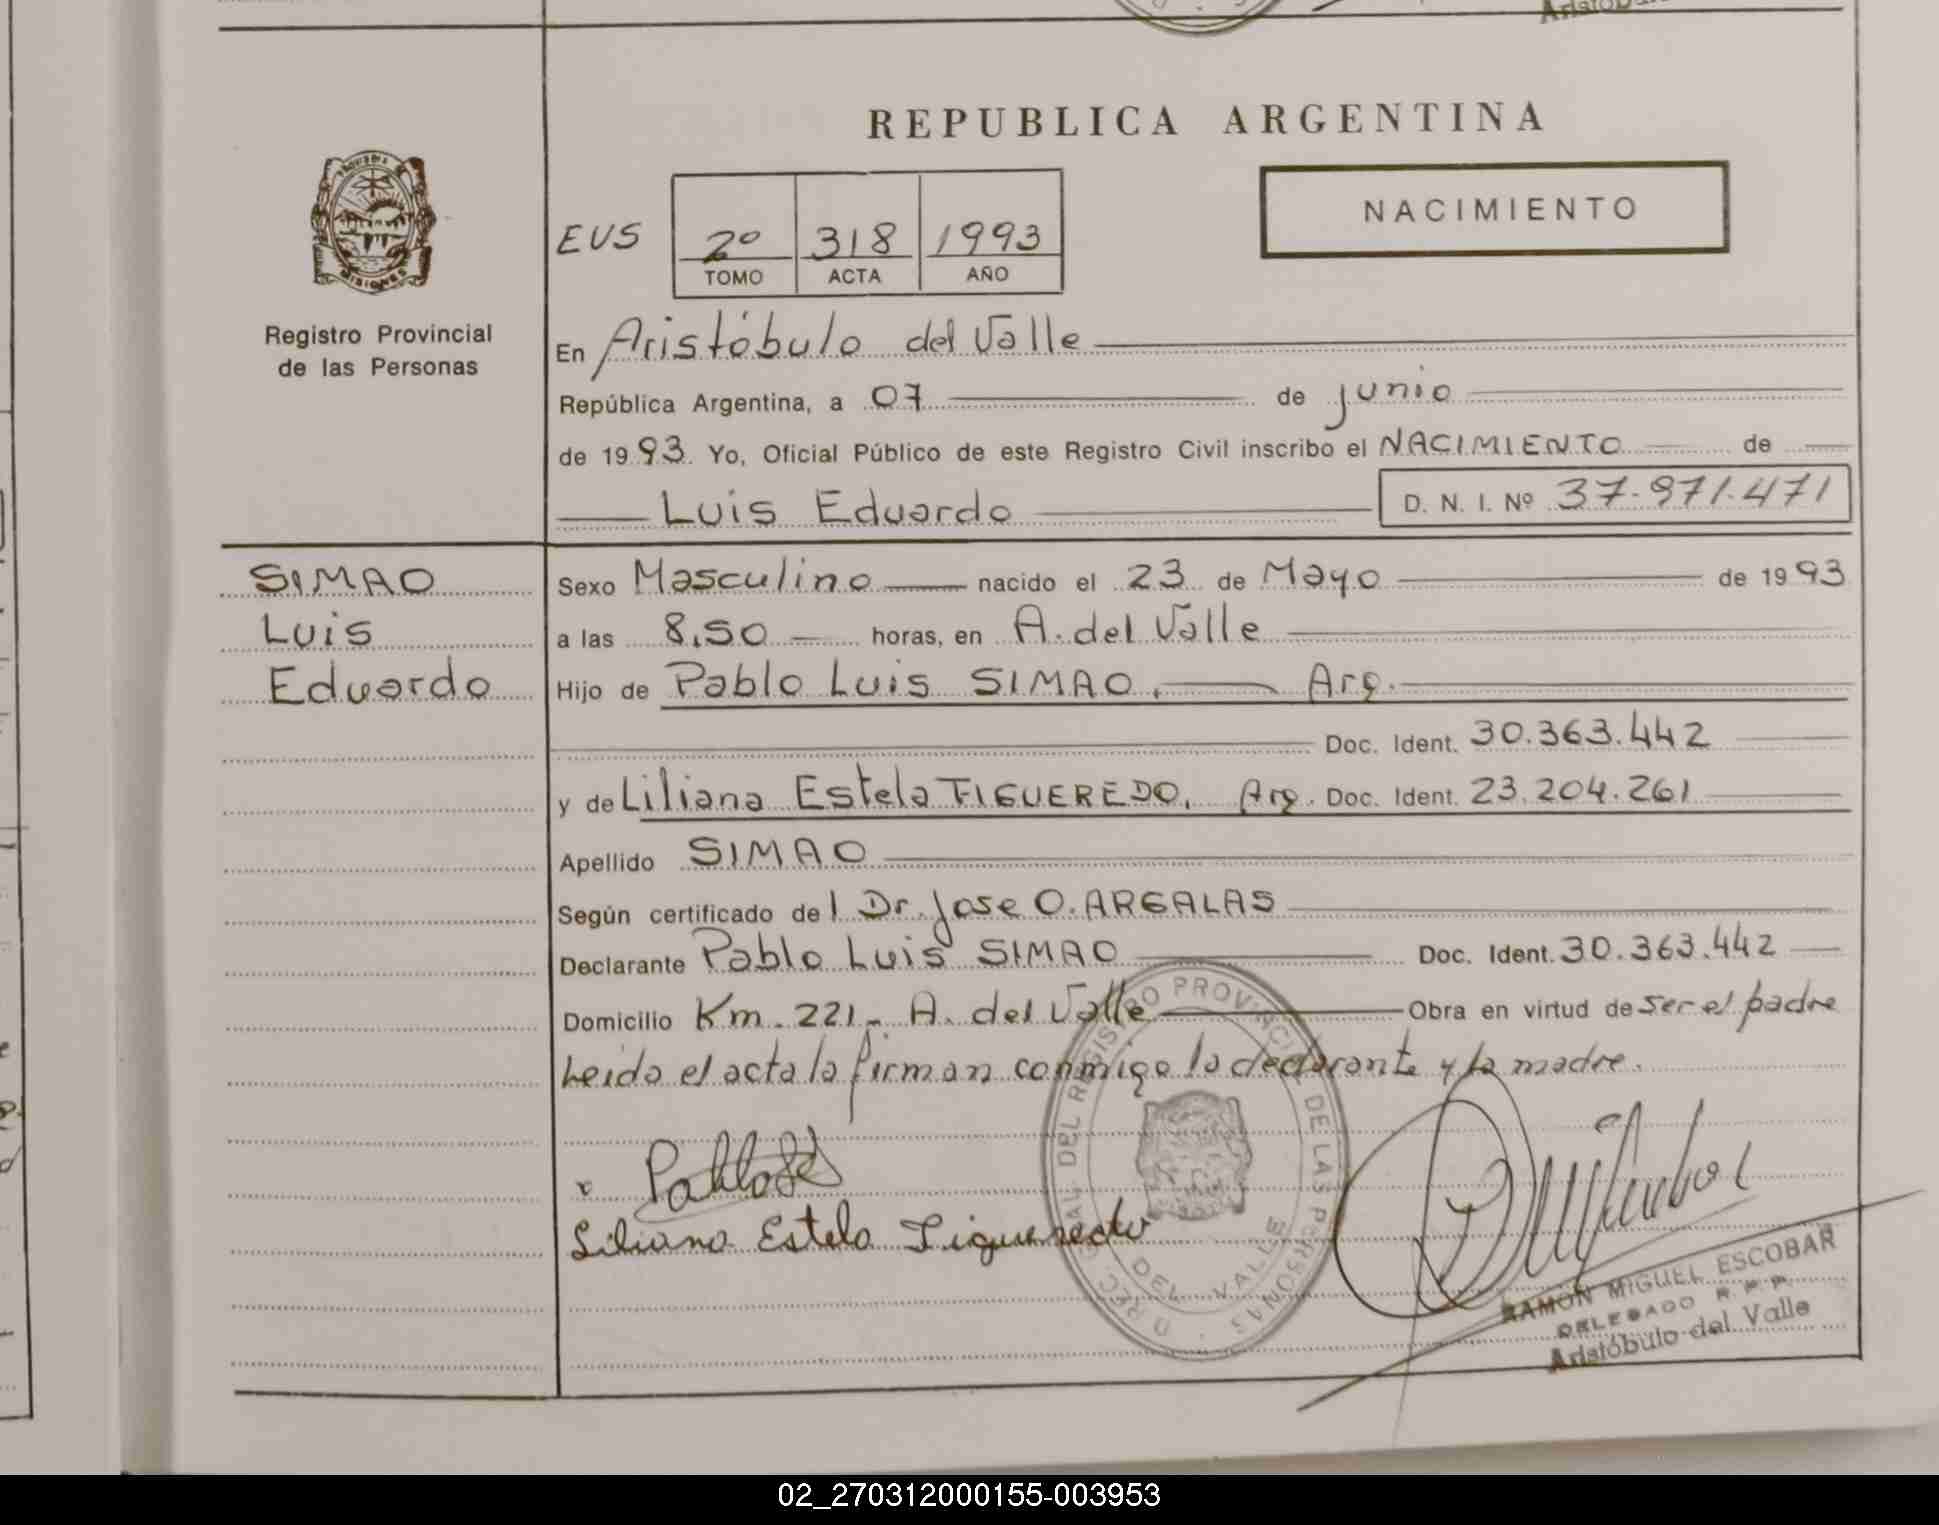 Aristóbu
REPUBLICA ARGENTINA
NACIMIENTO
MISIONES
Registro Provincial
de las Personas
EUS 2º 318 1993
TOMO ACTA AÑO
En Aristóbulo del Valle
República Argentina, a 07 de junio
de 1993. Yo, Oficial Público de este Registro Civil inscribo el NACIMIENTO de
Luis Eduardo D. N. I. Nº 37.971.471
SIMAO
Luis
Eduardo
Sexo Masculino nacido el 23 de Mayo de 1993
a las 8,50 horas, en A. del Valle
Hijo de Pablo Luis SIMAO, Arg.
Doc. Ident. 30.363.442
y de Liliana Estela FIGUEREDO, Arg. Doc. Ident. 23.204.261
Apellido SIMAO
Según certificado del Dr. Jose O. ARGALAS
Declarante Pablo Luis SIMAO Doc. Ident. 30.363.442
Domicilio Km. 221 - A. del Valle Obra en virtud de ser el padre
Leida el acta la firman conmigo la declarante y la madre.
Liliana Estela Figueredo
DEL REGISTRO PROVINCIAL DE LAS PERSONAS
DEL VALLE
RAMON MIGUEL ESCOBAR
DELEGADO R. P. P.
Aristóbulo del Valle
02_270312000155-003953